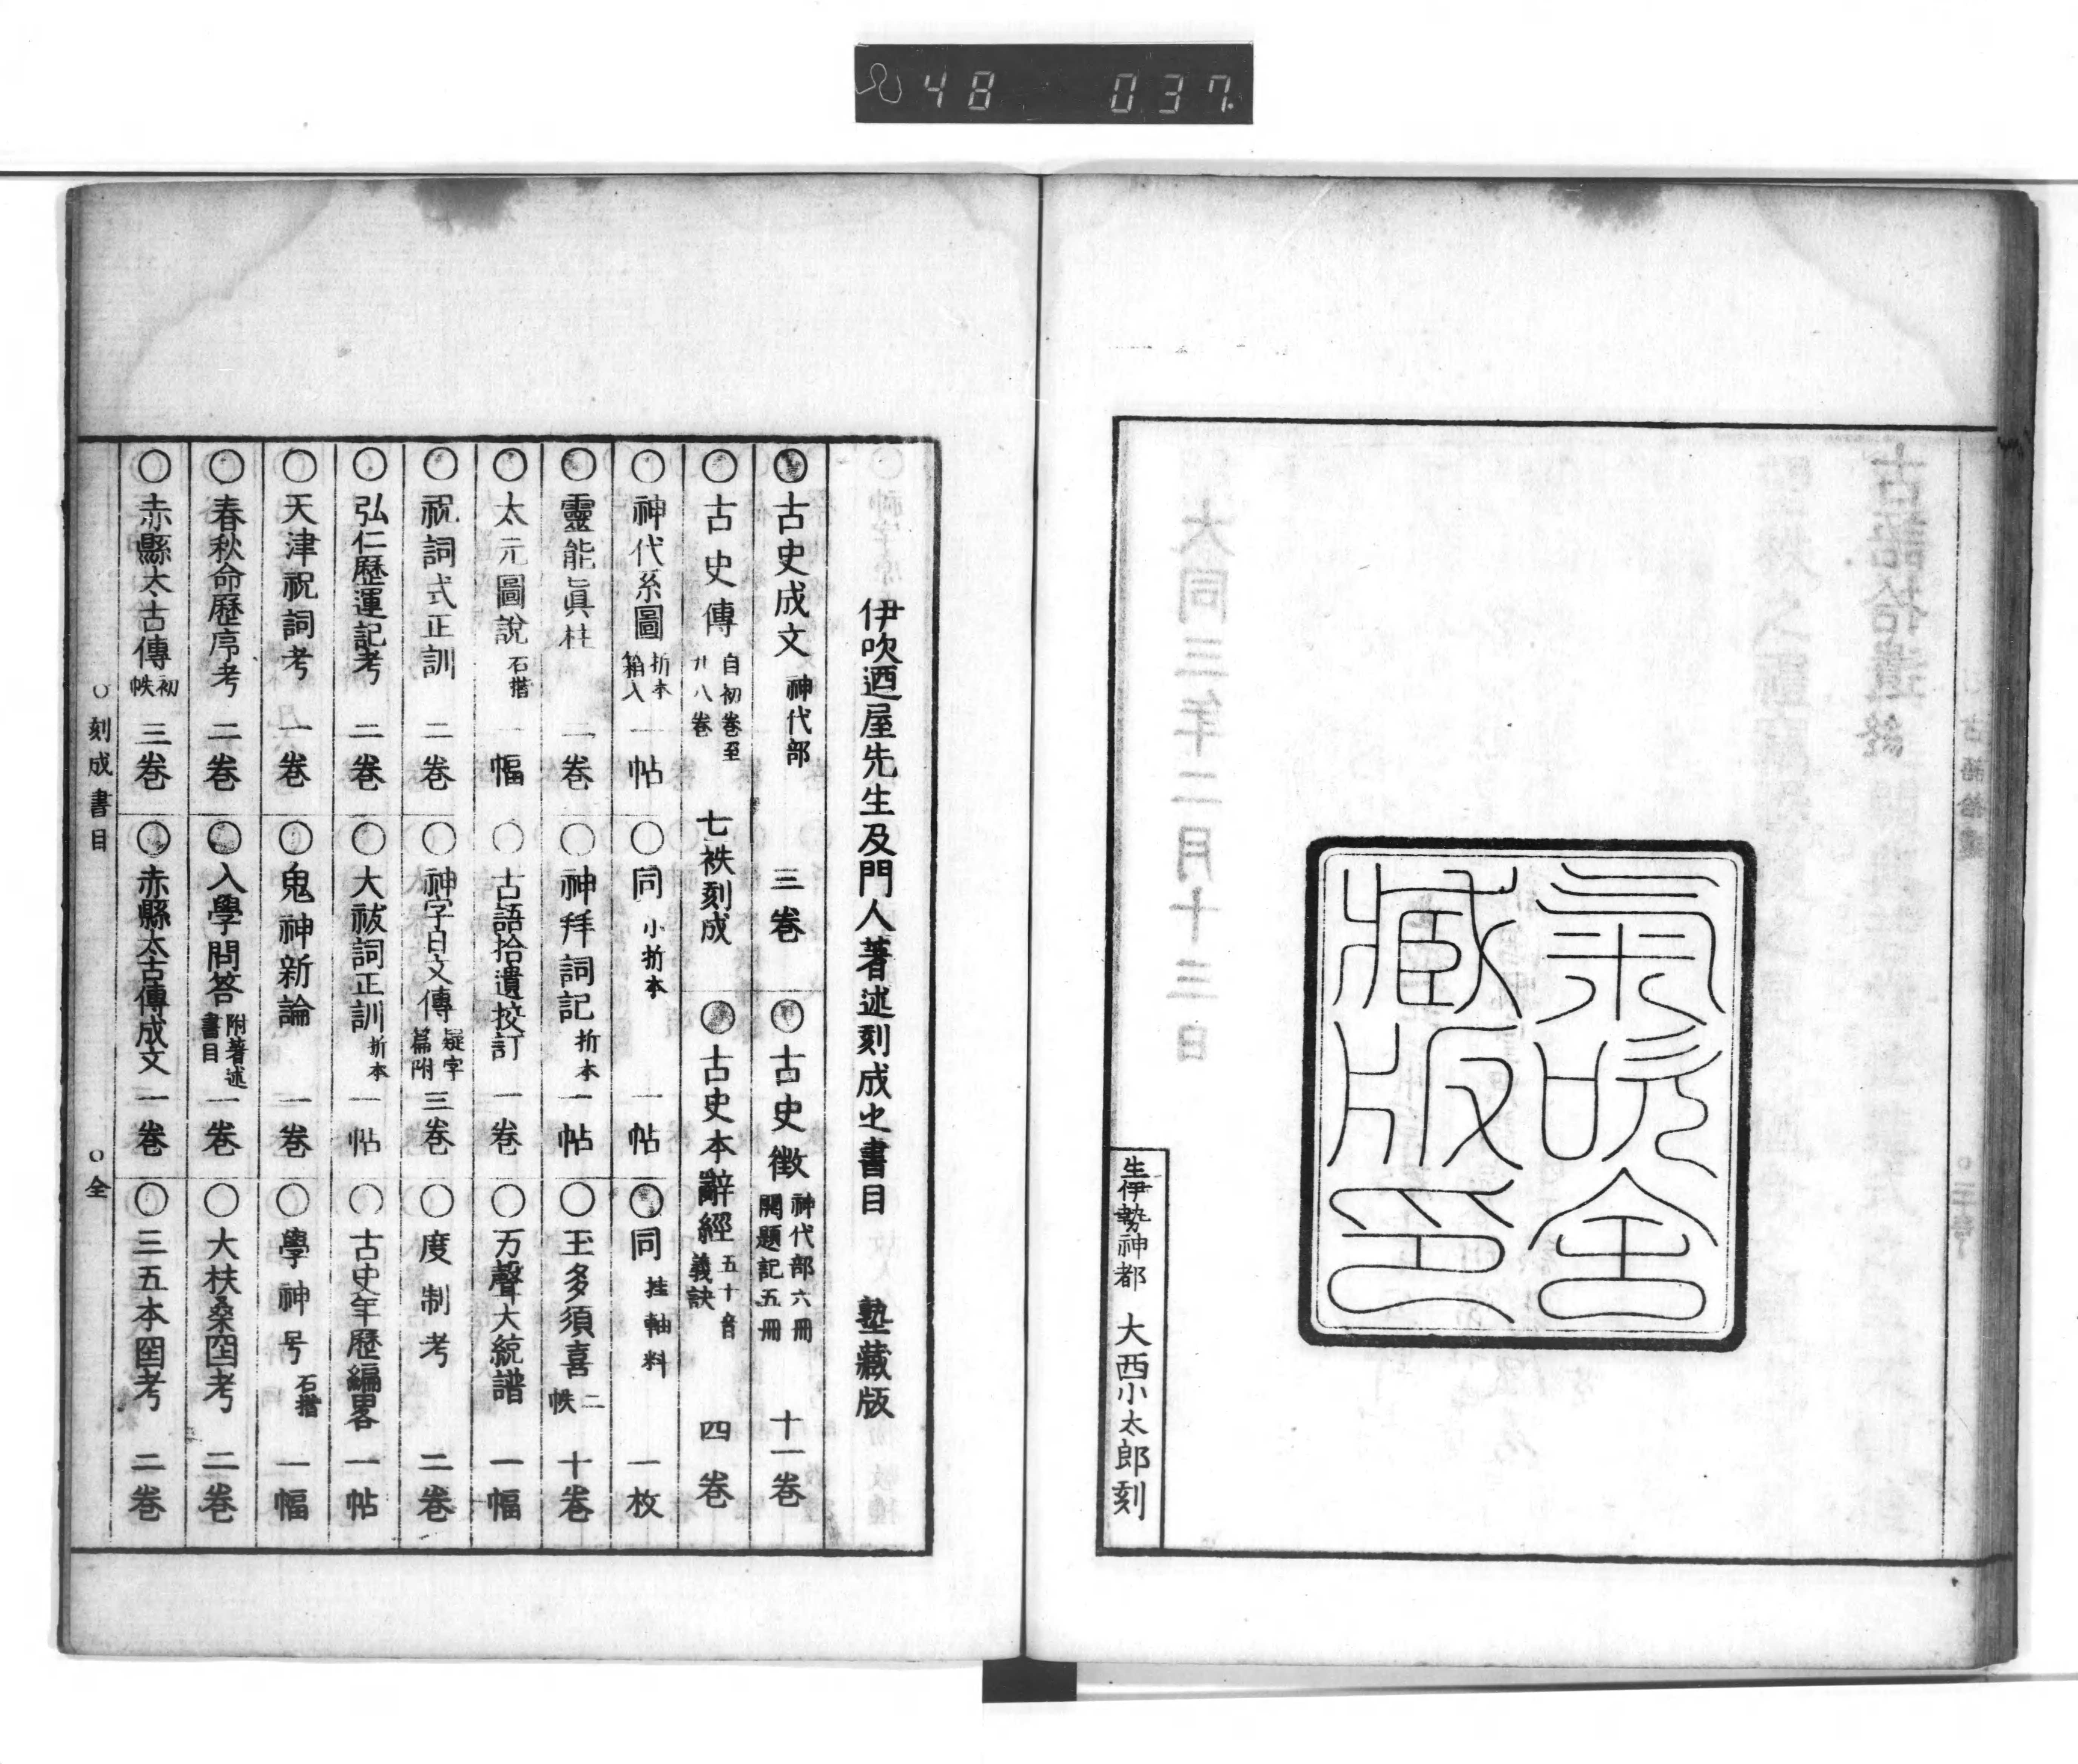 48 037
氣吹舎
藏版印
生伊勢神都 大西小太郎刻
伊吹迺屋先生及門人著述刻成之書目 塾藏版
○古史成文 神代部 三巻 ○古史徴 神代部六冊 開題記五冊 十一巻
○古史傳 自初巻至廿八巻 七袟刻成 ○古史本辭經 五十音義訣 四巻
○神代系圖 折本箱入 一帖 ○同 小折本 一帖 ○同 挂軸料 一枚
○靈能眞柱 二巻 ○神拜詞記 折本 一帖 ○玉多須喜 二帙 十巻
○太元圖說 石摺 一幅 ○古語拾遺挍訂 一巻 ○万聲大統譜 一幅
○祝詞式正訓 二巻 ○神字日文傳 疑字篇附 三巻 ○度制考 二巻
○弘仁歷運記考 二巻 ○大祓詞正訓 折本 一帖 ○古史年歷編畧 一帖
○天津祝詞考 一巻 ○鬼神新論 一巻 ○學神号 石摺 一幅
○春秋命歷序考 二巻 ○入學問答 附著述書目 一巻 ○大扶桑圀考 二巻
○赤縣太古傳 初帙 三巻 ○赤縣太古傳成文 一巻 ○三五本圀考 二巻
○刻成書目 ○全